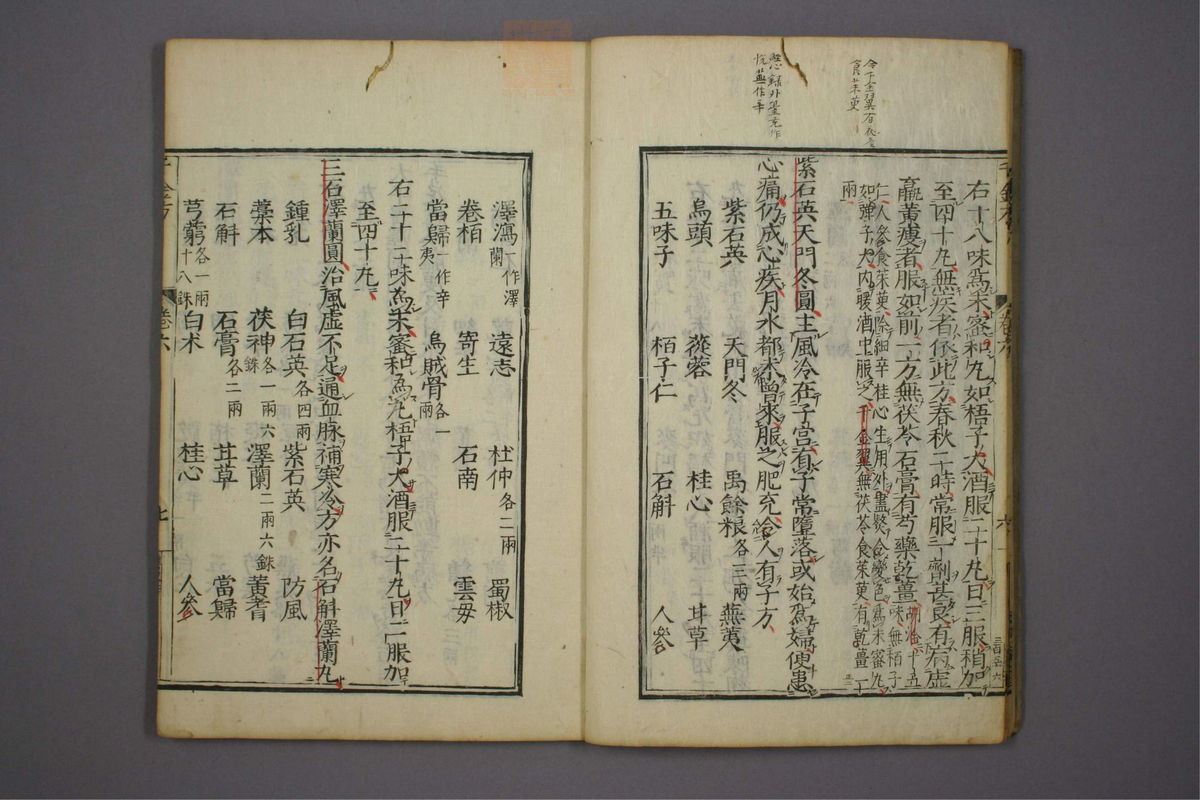 右十八味為末蜜和丸如梧子大酒服二十丸日三服稍加
至四十丸無疾者依此方春秋二時常服一劑甚良有病虛
羸黃瘦者服如前一方無茯苓石膏有芍藥乾薑 胡洽十五味無栢子
仁人參食茱萸除細辛桂心生用外盡熬令變色為末蜜丸
如彈子大內暖酒中服之千金翼無茯苓食茱萸有乾薑一
兩
紫石英天門冬圓主風冷在子宮有子常墮落或始為婦便患
心痛仍成心疾月水都未曾來服之肥充令人有子方
紫石英 天門冬 禹餘粮各三兩 蕪荑
烏頭 蓯蓉 桂心 甘草
五味子 栢子仁 石斛 人參
澤瀉一作澤蘭 遠志 杜仲各二兩 蜀椒
卷栢 寄生 石南 雲母
當歸一作辛夷 烏賊骨各一兩
右二十二味為末蜜和為丸梧子大酒服二十丸日二服加
至四十丸
三石澤蘭圓治風虛不足通血脉補寒冷方亦名石斛澤蘭丸
鍾乳 白石英各四兩 紫石英 防風
藁本 茯神各一兩六銖 澤蘭二兩六銖 黃耆
石斛 石膏各二兩 甘草 當歸
芎藭各一兩十八銖 白术 桂心 人參
卷六
七